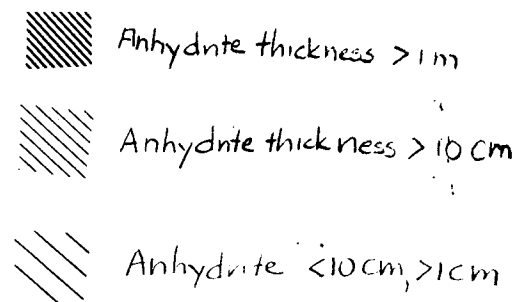 Anhydrite thickness >1m
Anhydrite thickness >10 cm
Anhydrite <10cm, >1cm